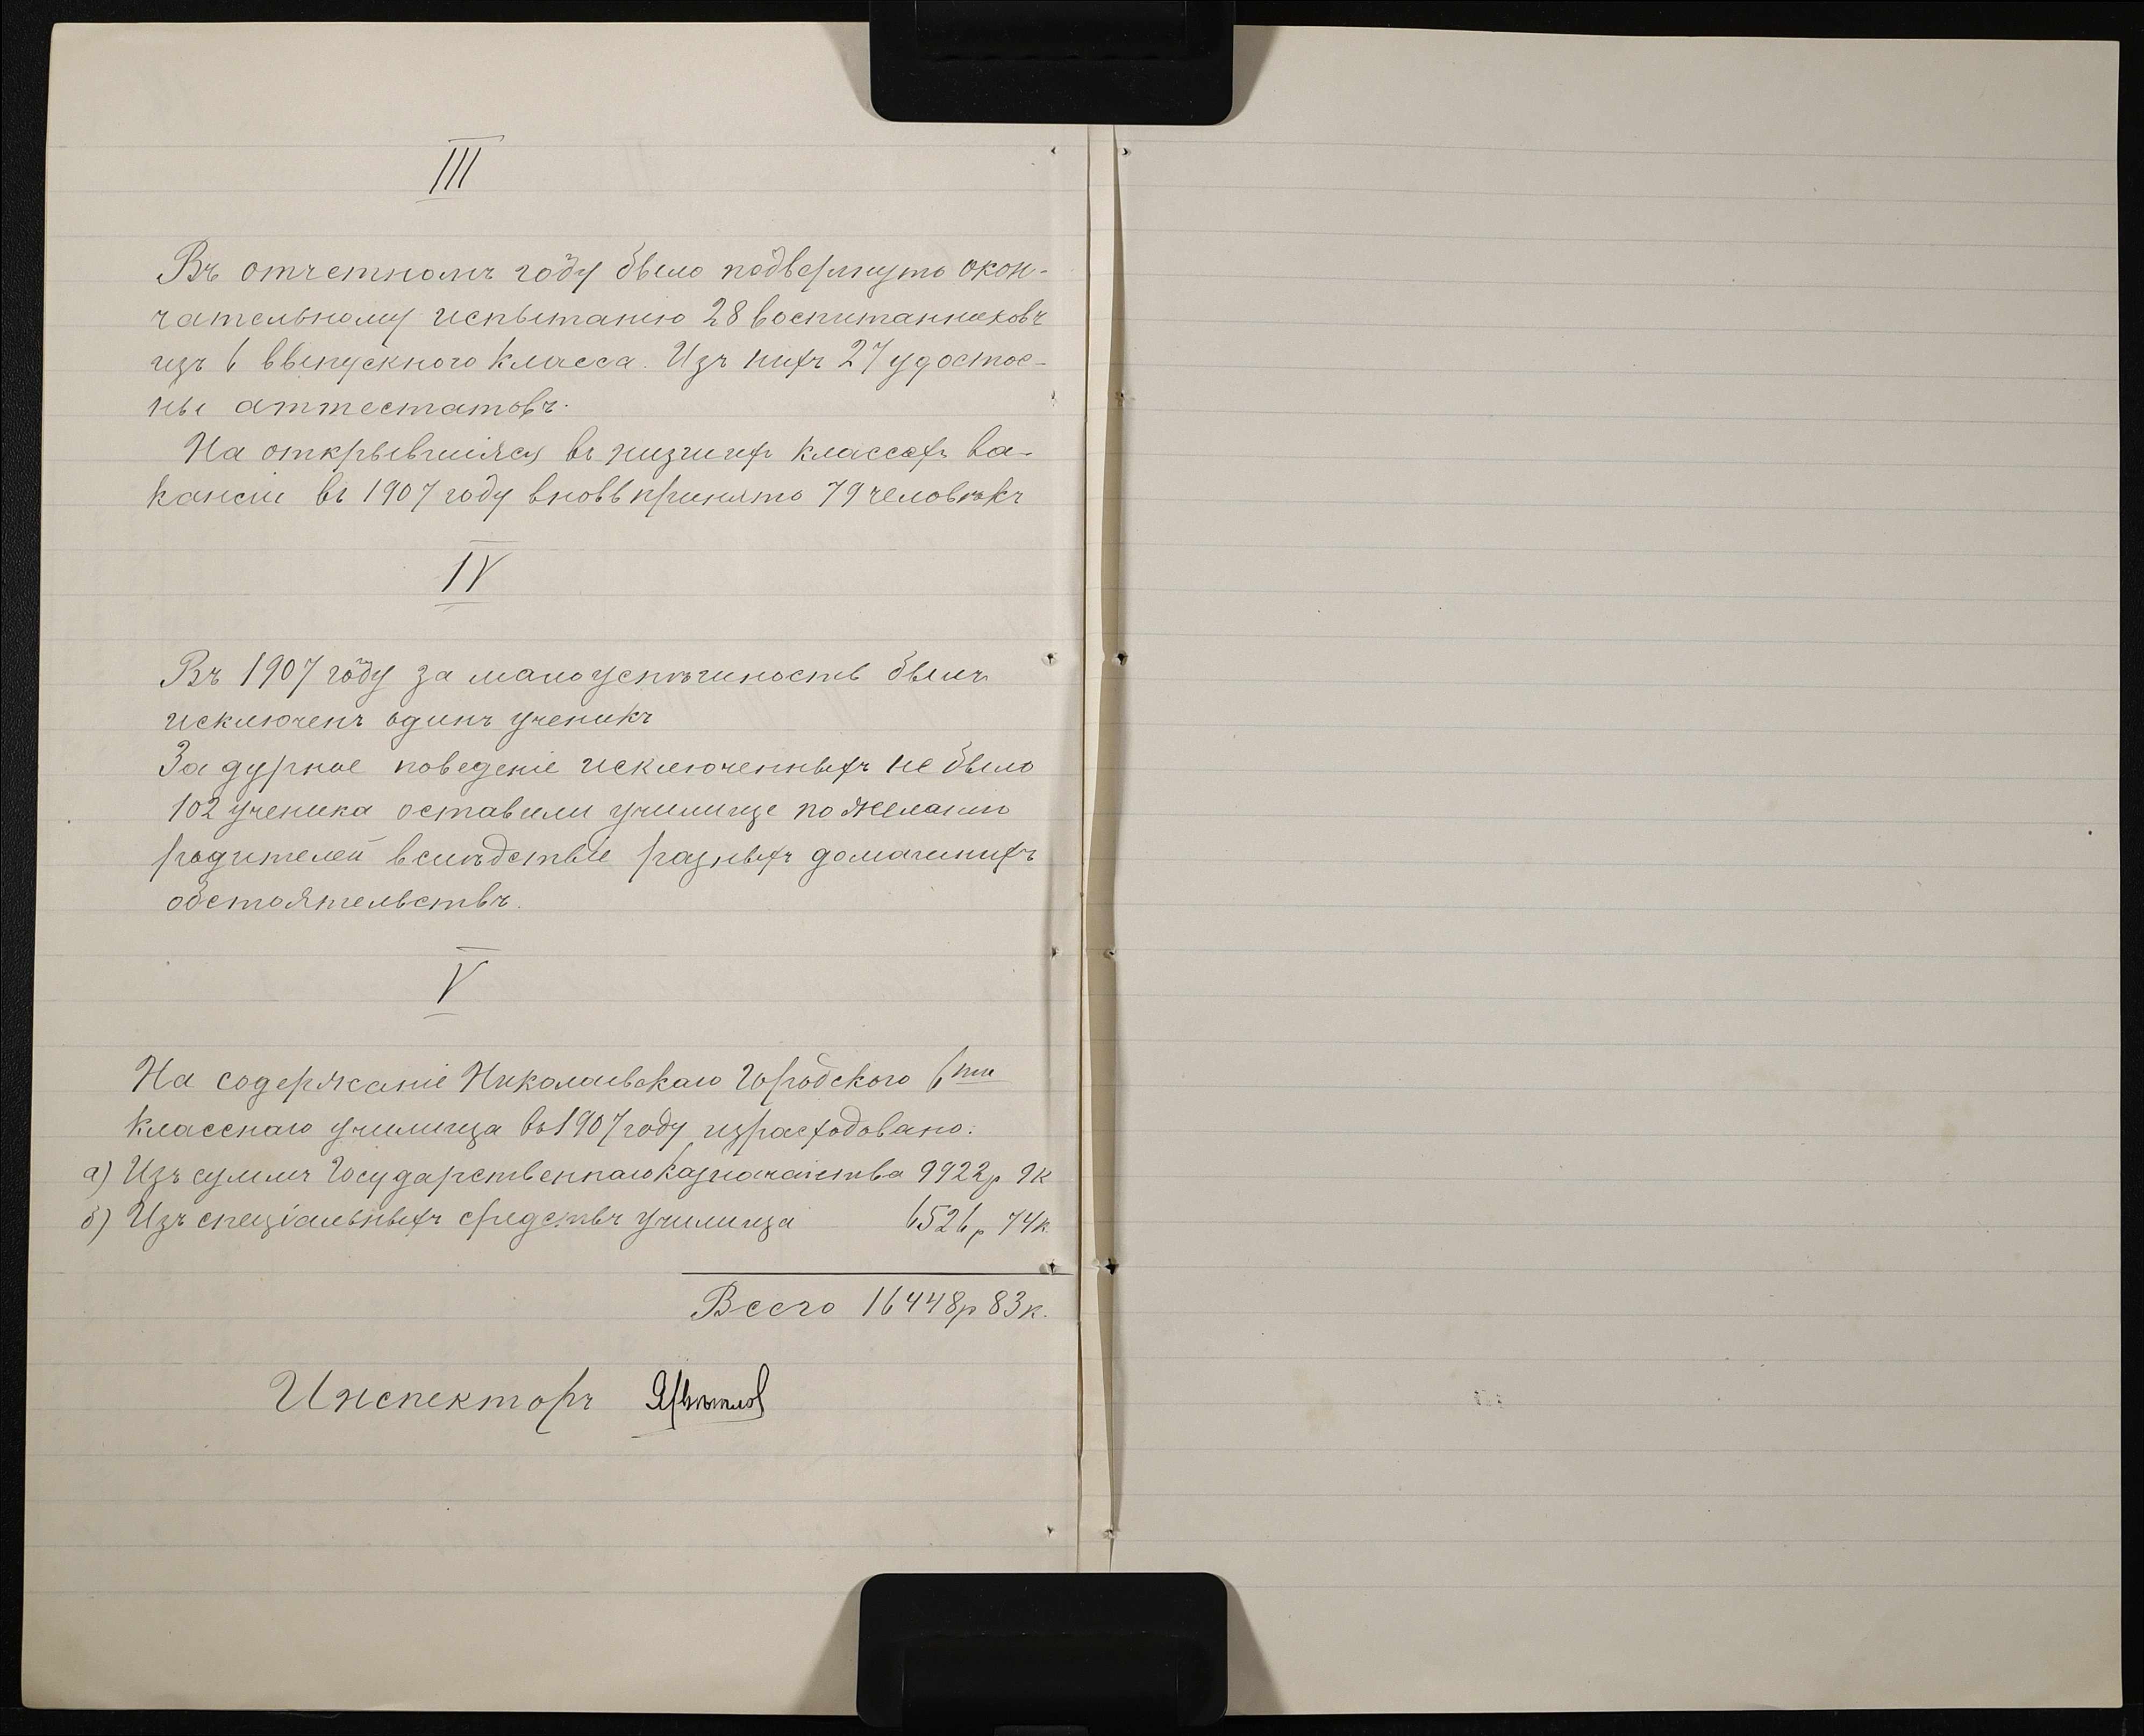 III
Въ отчетномъ году было подвергнуто окон-
чательному испытанію 28 воспитанниковъ
изъ 6 выпускного класса. Изъ нихъ 27 удостое-
ны аттестатовъ.
На открывшіяся въ низшихъ классахъ ва-
кансіи въ 1907 году вновь принято 79 человѣкъ
IV
Въ 1907 году за малоуспѣшность былъ
исключенъ одинъ ученикъ
За дурное поведеніе исключенныхъ не было
102 ученика оставили училище по желанію
родителей вслѣдствіе разныхъ домашнихъ
обстоятельствъ.
V
На содержаніе Николаевскаго Городского 6ти
класснаго училища въ 1907 году израсходовано:
а) Изъ суммъ Государственнаго Казначейства 9922р 9к
б) Изъ спеціальныхъ средствъ училища 6526р 74к.
Всего 16448р 83к.
Инспекторъ